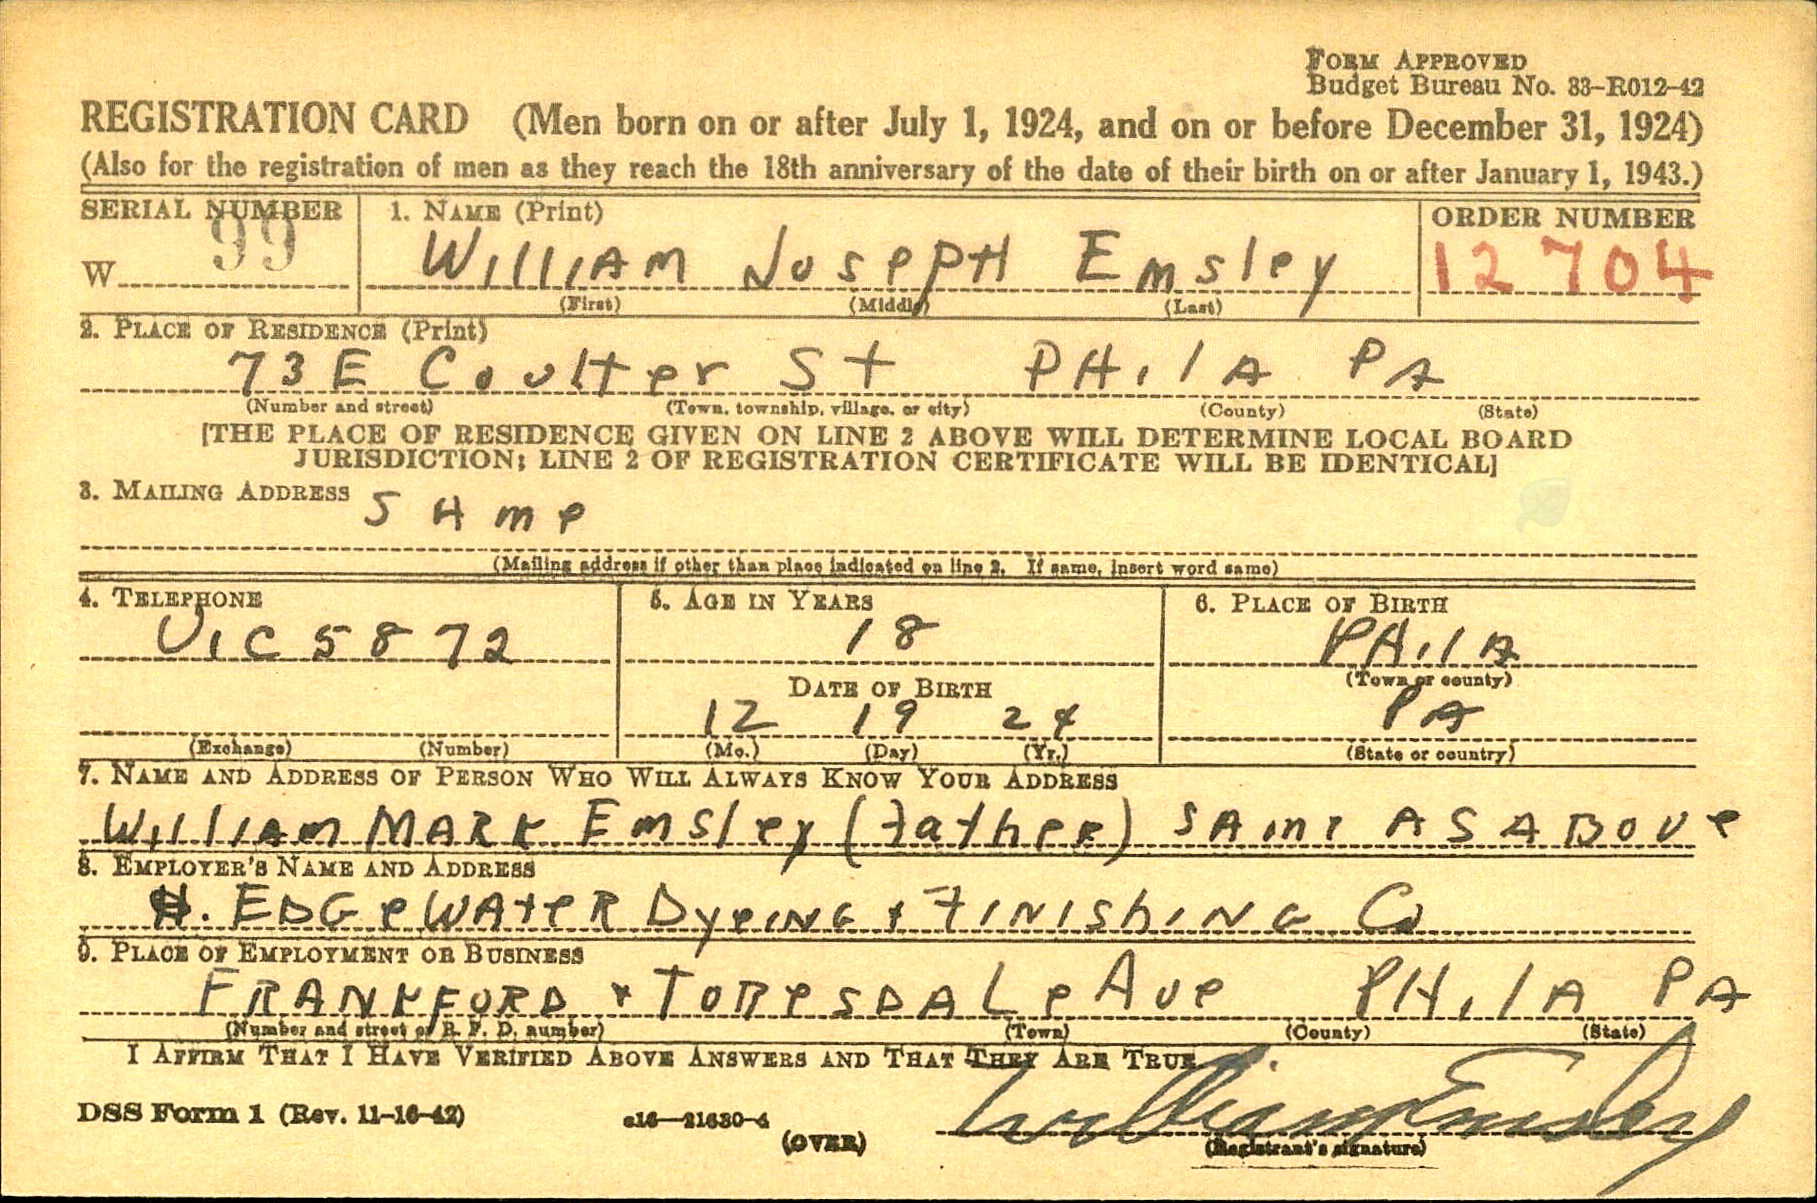 FORM APPROVED
Budget Bureau No. 33–R012–42
REGISTRATION CARD (Men born on or after July 1, 1924, and on or before December 31, 1924)
(Also for the registration of men as they reach the 18th anniversary of the date of their birth on or after January 1, 1943.)
SERIAL NUMBER 1. NAME (Print) ORDER NUMBER
W 99 William Joseph Emsley 12704
(First) (Middle) (Last)
2. PLACE OF RESIDENCE (Print)
73 E Coulter St Phila Pa
(Number and street) (Town, township, village, or city) (County) (State)
[THE PLACE OF RESIDENCE GIVEN ON LINE 2 ABOVE WILL DETERMINE LOCAL BOARD
JURISDICTION; LINE 2 OF REGISTRATION CERTIFICATE WILL BE IDENTICAL]
3. MAILING ADDRESS
Same
(Mailing address if other than place indicated on line 2. If same, insert word same)
4. TELEPHONE 5. AGE IN YEARS 6. PLACE OF BIRTH
Vic 5872 18 Phila
(Town or county)
DATE OF BIRTH
12 19 24 Pa
(Exchange) (Number) (Mo.) (Day) (Yr.) (State or country)
7. NAME AND ADDRESS OF PERSON WHO WILL ALWAYS KNOW YOUR ADDRESS
William Mark Emsley (Father) Same as above
8. EMPLOYER'S NAME AND ADDRESS
Edgewater Dyeing & Finishing Co
9. PLACE OF EMPLOYMENT OR BUSINESS
Frankford & Torresdale Ave Phila Pa
(Number and street or R. F. D. number) (Town) (County) (State)
I AFFIRM THAT I HAVE VERIFIED ABOVE ANSWERS AND THAT THEY ARE TRUE.
DSS Form 1 (Rev. 11–16–42) c16—21630-4 William Emsley
(OVER) (Registrant's signature)